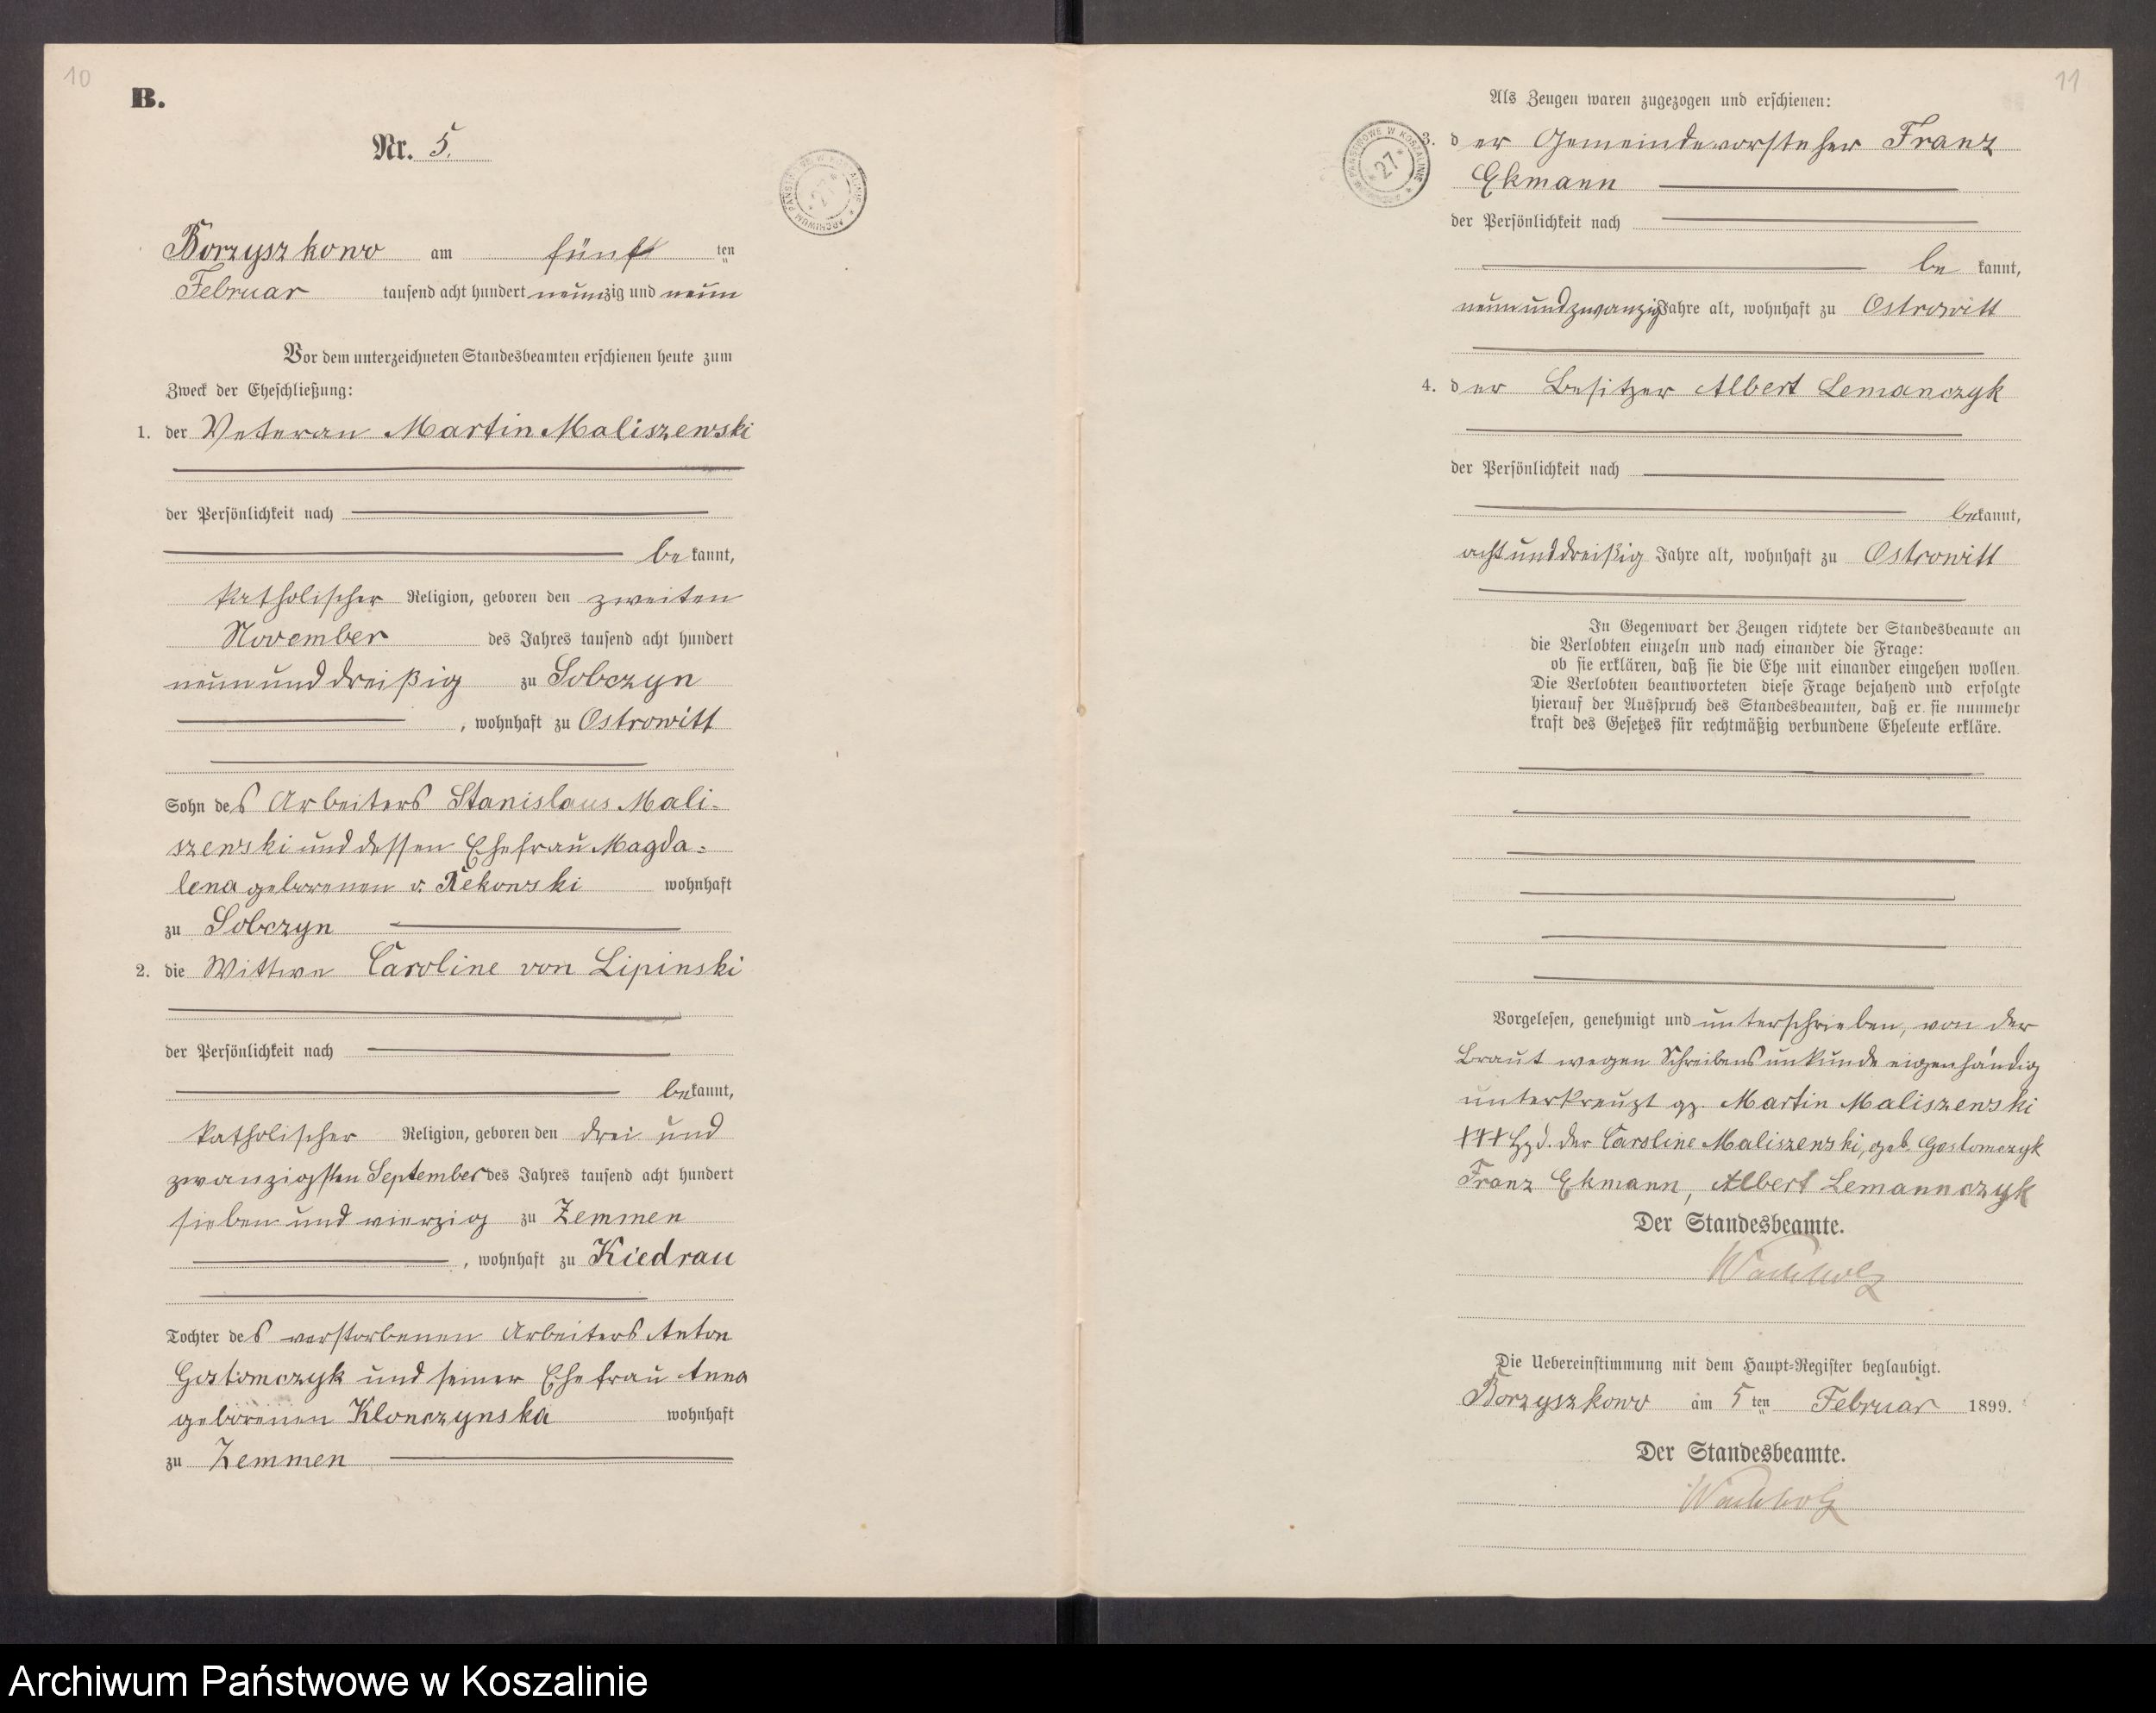 10
B.
Nr. 5.
Borzyszkowo am fünf ten
Februar tausend acht hundert neunzig und neun
Vor dem unterzeichneten Standesbeamten erschienen heute zum
Zweck der Eheschließung:
1. der Veteran Martin Maliszewski
der Persönlichkeit nach
be kannt,
katholischer Religion, geboren den zweiten
November des Jahres tausend acht hundert
neununddreißig zu Sobczyn
, wohnhaft zu Ostrowitt
Sohn des Arbeiters Stanislaus Mali-
szewski und dessen Ehefrau Magda-
lena geborenen v. Rekowski wohnhaft
zu Sobczyn
2. die Wittwe Caroline von Lipinski
der Persönlichkeit nach
bekannt,
katholischer Religion, geboren den drei und
zwanzigsten September des Jahres tausend acht hundert
sieben und vierzig zu Zemmen
, wohnhaft zu Kiedrau
Tochter des verstorbenen Arbeiters Anton
Gostomczyk und seiner Ehefrau Anna
geborenen Klonczynska wohnhaft
zu Zemmen
ARCHIWUM PAŃSTWOWE W KOSZALINIE
* 27 *
11
Als Zeugen waren zugezogen und erschienen:
ARCHIWUM PAŃSTWOWE W KOSZALINIE
* 27 *
3. der Gemeindevorsteher Franz
Ekmann
der Persönlichkeit nach
be kannt,
neunundzwanzig Jahre alt, wohnhaft zu Ostrowitt
4. der Besitzer Albert Lemanczyk
der Persönlichkeit nach
bekannt,
achtunddreißig Jahre alt, wohnhaft zu Ostrowitt
In Gegenwart der Zeugen richtete der Standesbeamte an
die Verlobten einzeln und nach einander die Frage:
ob sie erklären, daß sie die Ehe mit einander eingehen wollen.
Die Verlobten beantworteten diese Frage bejahend und erfolgte
hierauf der Ausspruch des Standesbeamten, daß er sie nunmehr
kraft des Gesetzes für rechtmäßig verbundene Eheleute erkläre.
Vorgelesen, genehmigt und unterschrieben, von der
Braut wegen Schreibensunkunde eigenhändig
unterkreuzt gz. Martin Maliszewski
+++ Hzd. der Caroline Maliszewski, geb. Gostomczyk
Franz Ekmann, Albert Lemannczyk
Der Standesbeamte.
Wachholz
Die Uebereinstimmung mit dem Haupt-Register beglaubigt.
Borzyszkowo am 5 ten Februar 1899.
Der Standesbeamte.
Wachholz
Archiwum Państwowe w Koszalinie